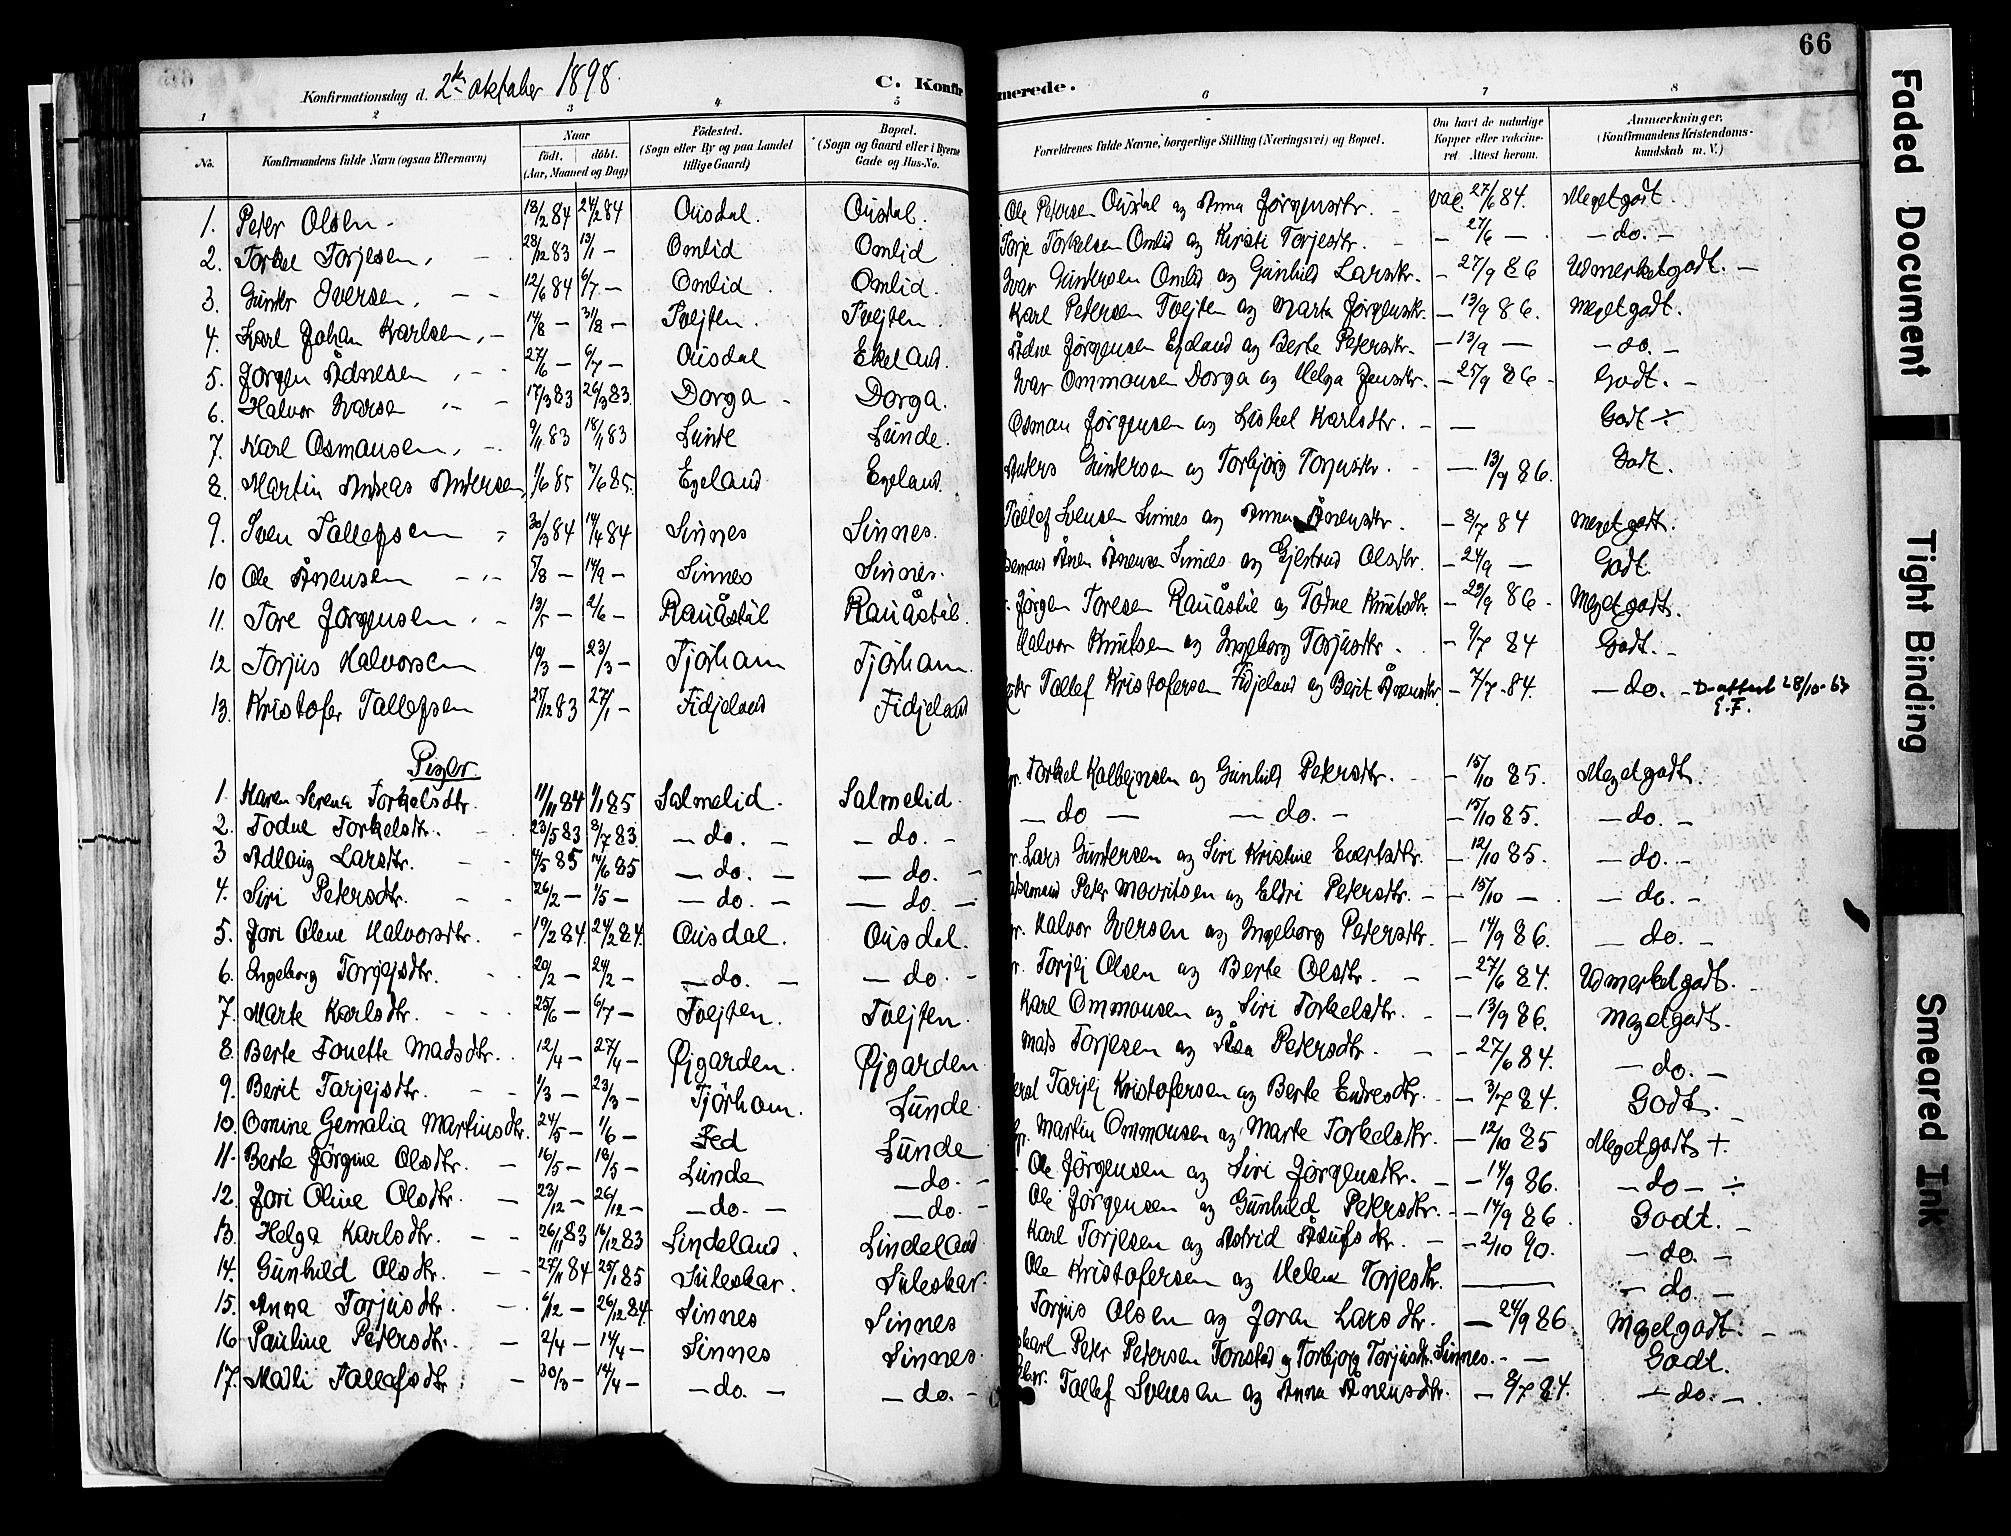 66
Konfirmationsdag d. 2den oktober 1898.
C. Konfirmerede.
1 2 3 4 5 6 7 8
No. Konfirmandens fulde Navn (ogsaa Efternavn) Naar födt. döbt. (Aar, Maaned og Dag) Födested. (Sogn eller By og paa Landet tillige Gaard) Bopæl. (Sogn og Gaard eller i Byerne Gade og Hus-No. Forældrenes fulde Navne, borgerlige Stilling (Næringsvei) og Bopæl. Om havt de naturlige Kopper eller vakcineret Attest herom. Anmærkninger. (Konfirmandens Kristendomskundskab m. V.)
1. Peter Olsen 13/2 84 24/2 84 Ousdal. Ousdal. Ole Petersen Ousdal og Anna Jørgensdtr. vac. 27/6 84. Meget godt.
2. Torkel Torjesen 28/12 83 13/1 — Omlid Omlid Torje Torkelsen Omlid og Kirsti Torjesdtr. — 27/6 — — do. —
3. Gunder Iversen 12/6 84 6/7 — Omlid. Omlid. Ivar Gundersen Omlid og Gunhild Larsdtr. — 27/9 86 Udmerket godt. —
4. Karl Johan Karlsen 14/8 — 31/8 — Tvejten. Tvejten. Karl Petersen Tvejten og Marta Jørgensdtr. — 13/9 86. Meget godt.
5. Jørgen Ådnesen 27/6 — 6/7 — Ousdal Ekeland. Ådne Jørgensen Egeland og Berte Petersdtr. — 13/9 — — do. —
6. Halvor Ivarsen 17/3 83 26/3 83. Dorga Dorga. Ivar Ommonsen Dorga og Helga Jensdtr. — 25/9 86 Godt. —
7. Karl Osmonsen 9/11 83 18/11 83 Lunde Lunde. Osmon Jørgensen og Liskel Karlsdtr. — — Godt ÷
8. Martin Andreas Andersen 1/6 85 7/6 85. Egeland Egeland. Anders Gundersen og Torbjørg Torjusdtr. — 13/9 86. Godt.
9. Sven Tallefsen 30/3 84 14/4 84 Sinnes Sinnes. Tallef Svensen Sinnes og Anna Ånensdtr. — 8/7 84 Meget godt.
10 Ole Ånensen 5/8 — 14/9 — Sinnes Sinnes. Ånen Ånensen Sinnes og Gjertrud Olsdtr. — 24/9 — Godt.
11. Tore Jørgensen 13/5 — 2/6 — Rauåstøl Rauåstøl. Jørgen Toresen Rauåstøl og Todne Knutsdtr. — 23/9 86 Meget godt.
12 Torjus Halvorsen 19/3 — 23/3 — Tjørhom Tjørhom. Halvor Knutsen og Ingeborg Torjusdtr. — 9/7 84 Godt. —
13. Kristofer Tallefsen 25/12 83 27/1 — Fidjeland Fidjeland Tallef Kristofersen Fidjeland og Berit Ånensdtr. — 7/7 84. — do. — D-attest 28/10-63 E.F.
Piger.
1. Karen Serena Torkelsdtr. 11/11 84 1/1 85 Salmelid. Salmelid. Torkel Kolbejnsen og Gunhild Petersdtr. — 15/10 85. Meget godt.
2. Todne Torkelsdtr. 23/5 83 8/7 83. — do. — — do. — — do — — do. — — 15/10 85. — do. —
3 Adlaug Larsdtr. 4/5 85 14/6 85 — do. — — do. — Lars Gundersen og Siri Kristine Evertsdtr. — 12/10 85. — do. —
4. Siri Petersdtr. 26/2 — 1/5 — — do. — — do. — Peter Mouritsen og Eldri Petersdtr. — 15/10 — — do. —
5. Jori Olene Halvorsdtr. 19/2 84. 24/2 84. Ousdal. Ousdal. Halvor Iversen og Ingeborg Petersdtr. — 14/9 86. — do. —
6. Ingeborg Torjejsdtr. 20/2 — 24/2 — — do. — — do. — Torjej Olsen og Berte Olsdtr. — 27/6 84. Udmerket godt.
7. Marte Karlsdtr. 25/6 — 6/7 — Tvejten. Tvejten. Karl Ommonsen og Siri Torkelsdtr. — 13/9 86. Meget godt.
8. Berte Tonette Madsdtr. 12/4 — 27/4 — Øjgarden. Øjgarden. Mads Torjesen og Åsa Petersdtr. — 27/6 84. — do. —
9. Berit Tarjejsdtr. 1/3 — 23/3 — Tjørhom. Lunde Tarjej Kristofersen og Berte Endresdtr. — 3/7 84. Godt. —
10. Omine Gemalia Martinsdtr. 24/5 — 1/6 — Fed Lunde Martin Ommonsen og Marte Torkelsdtr. — 12/10 85 Meget godt +
11. Berte Jørgine Olsdtr. 16/5 — 18/5 — Lunde — do. — Ole Jørgensen og Siri Jørgensdtr. — 14/9 86. — do — ÷
12. Jori Oline Olsdtr. 23/12 — 26/12 — — do. — — do. — Ole Jørgensen og Gunhild Petersdtr. — 14/9 86. Godt. —
13. Helga Karlsdtr. 26/11 83 16/12 83 Lindeland. Lindeland Karl Torjesen og Astrid Åsufsdtr. — 2/10 90. — do. —
14. Gunhild Olsdtr. 27/11 84 25/1 85 Suleskar Suleskar. Ole Kristofersen og Helene Torjesdtr. — — do. —
15. Anna Torjusdtr. 6/12 — 26/12 84. Sinnes Sinnes Torjus Olsen og Joran Larsdtr. — 24/9 86. Meget godt.
16 Pauline Petersdtr. 2/4 — 14/4 — Sinnes Sinnes. Peter Petersen Tonstad og Torbjorg Torjusdtr. Sinnes. — Godt.
17. Malli Tallefsdtr. 30/3 — 14/4 — — do. — — do. — Tallef Svensen og Anna Ånensdtr. — 8/7 84. — do. —
Faded Document
Tight Binding
Smeared Ink